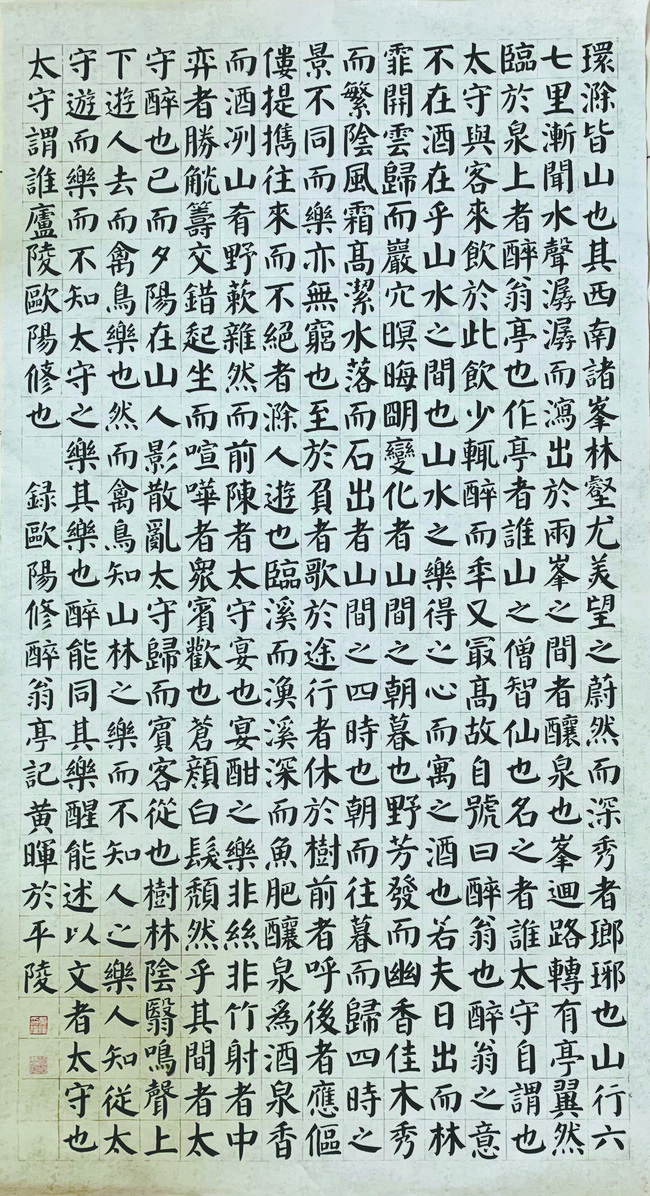 環滁皆山也其西南諸峯林壑尤美望之蔚然而深秀者瑯琊也山行六
七里漸聞水聲潺潺而瀉出於兩峯之間者釀泉也峯迴路轉有亭翼然
臨於泉上者醉翁亭也作亭者誰山之僧智仙也名之者誰太守自謂也
太守與客來飲於此飲少輒醉而年又最高故自號曰醉翁也醉翁之意
不在酒在乎山水之間也山水之樂得之心而寓之酒也若夫日出而林
霏開雲歸而巖穴暝晦明變化者山間之朝暮也野芳發而幽香佳木秀
而繁陰風霜高潔水落而石出者山間之四時也朝而往暮而歸四時之
景不同而樂亦無窮也至於負者歌於途行者休於樹前者呼後者應傴
僂提攜往來而不絕者滁人遊也臨溪而漁溪深而魚肥釀泉為酒泉香
而酒洌山肴野蔌雜然而前陳者太守宴也宴酣之樂非絲非竹射者中
弈者勝觥籌交錯起坐而喧嘩者眾賓歡也蒼顏白髮頹然乎其間者太
守醉也已而夕陽在山人影散亂太守歸而賓客從也樹林陰翳鳴聲上
下遊人去而禽鳥樂也然而禽鳥知山林之樂而不知人之樂人知從太
守遊而樂而不知太守之樂其樂也醉能同其樂醒能述以文者太守也
太守謂誰廬陵歐陽修也 錄歐陽修醉翁亭記黃暉於平陵